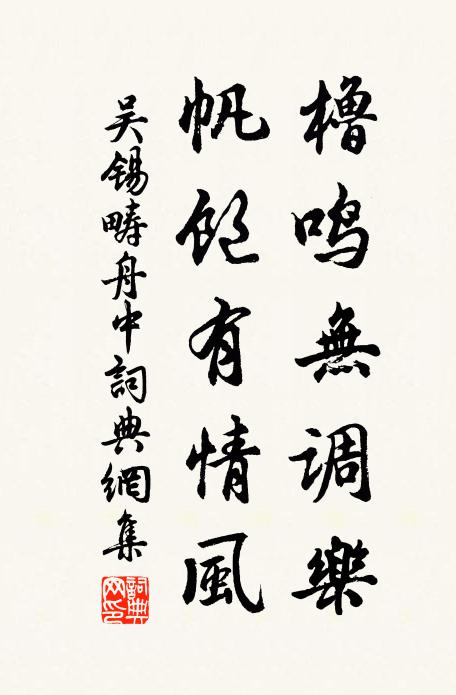 櫓鸣無调樂
帆飽有情風
吴锡畴舟中詞典網集
詞典网印